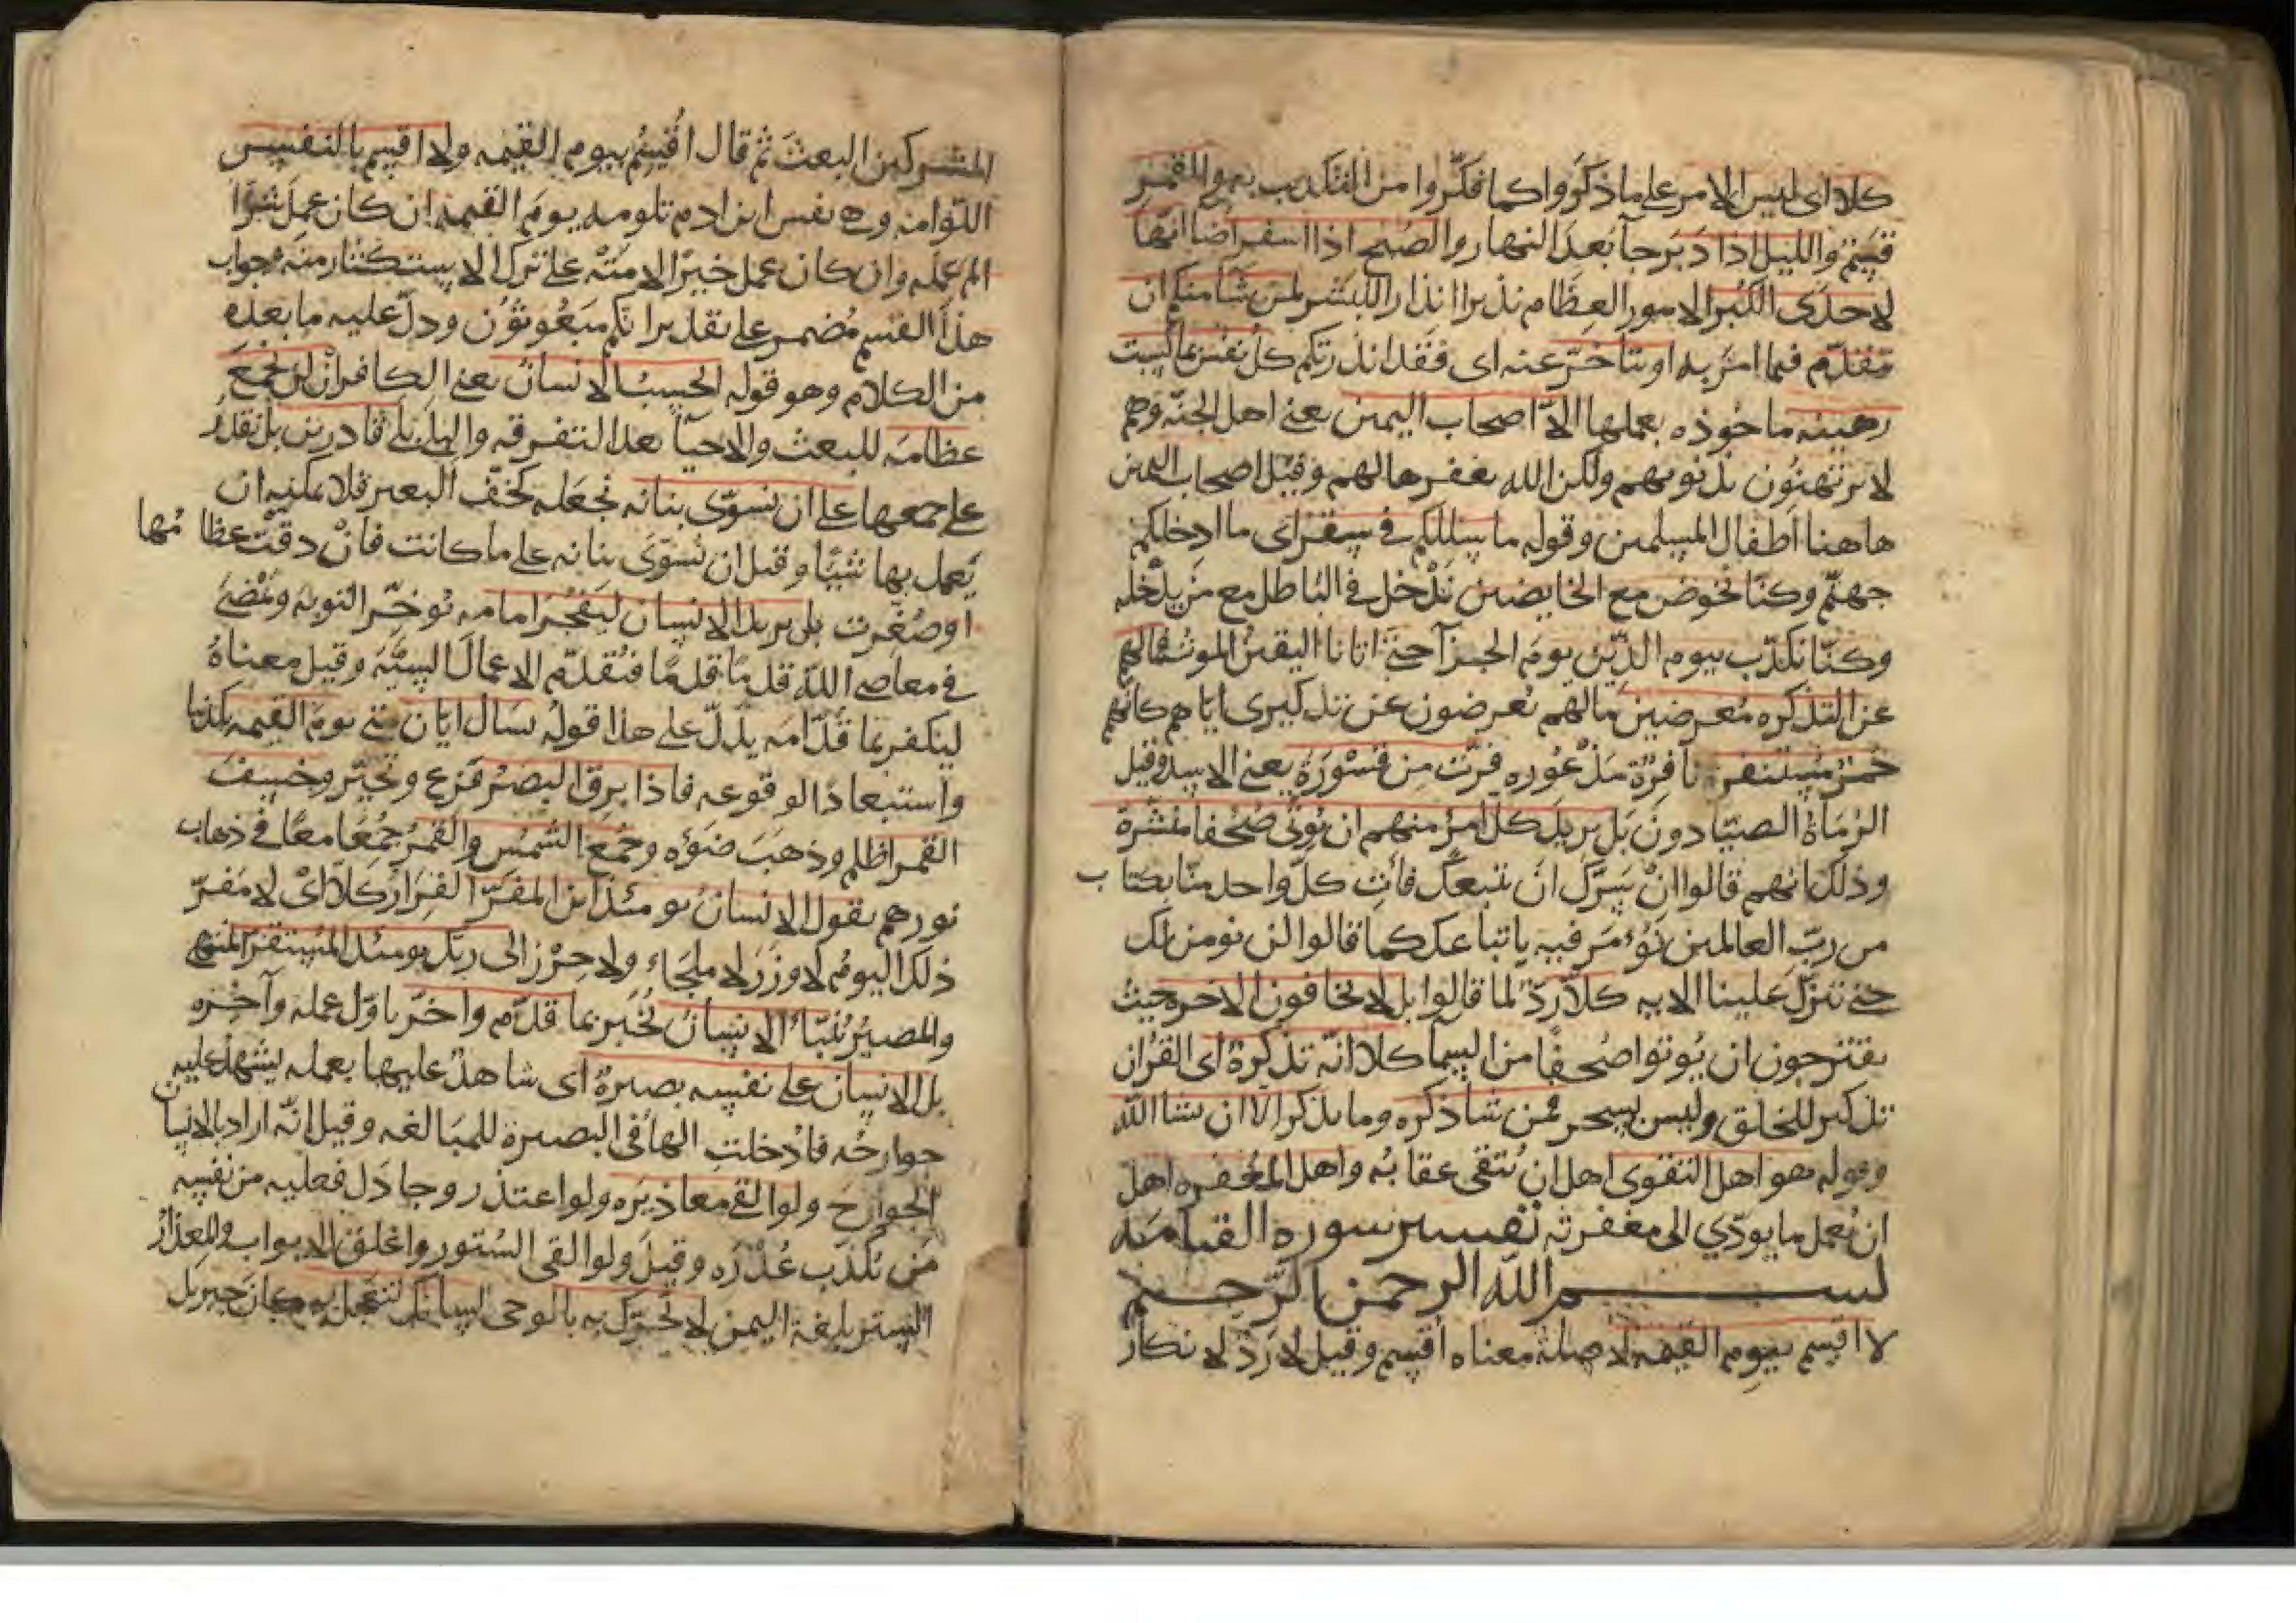 كلا اى ليس الامر على ما ذكروا كما فكّروا من التكذيب به والقمر
قسم والليل اذا دبر جآ بعد النهار والصبح اذا اسفر اضا انّها
لاحدى الكبر الامور العظام نذيرا انذارا للبشر لمن شا منكم ان
يتقدّم فيما امر به او يتاخّر عنه اى فقد انذرتكم كل نفس بما كسبت
رهينه ماخوذه بعملها الاّ اصحاب اليمين يعنى اهل الجنّه وهم
لا يرتهنون بذنوبهم ولكن الله يغفرها لهم وقيل اصحاب اليمين
هاهنا اطفال المسلمين وقوله ما سلككم فى سقر اى ما ادخلكم
جهنّم وكنّا نخوض مع الخايضين ندْخل فى الباطل مع من يدْخله
وكنّا نكذّب بيوم الدّين يوم الجزآ حتى اتانا اليقين الموت فما لهم
عن التذكره معرضين ما لهم يعرضون عن تذكيرى اياهم كانّهم
حمر مستنفرة نافرة مذْعُوره فرّت من قسْوَرَةٍ يعنى الاسد وقيل
الرُماة الصيّادون بَل يريد كل امرئ منهم ان يُوتى صُحُفا منشّرة
وذلك انهم قالوا انْ يسرّك ان نتبعك فأتِ كلّ واحد منّا بكتاب
من ربّ العالمين نُؤمَر فيه باتباعك كما قالوا لن نومن لك
حتى تنزّل علينا الايه كلاّ ردّ لما قالوا بل لا يخافون الاخره حيث
يقترحون ان يُوتوا صُحفًا من السمآ كلا انّه تذكرة اى القرْان
تذكير للخلق وليس بسحر فمن شا ذكره وما يذكر الا ان يشا الله
وقوله هو اهل التقوى اهل ان يُتقى عقابُه واهل المغفره اهل
ان يُعمل ما يودّي الى مغفرته تفسير سوره القيامه
بسم الله الرحمن الرّحيم
لا اقسم بيوم القيمه لا صلة معناه اقسم وقيل لا ردّ لانكار
المشركين البعث ثم قال اُقسِم بيوم القيمه ولا اقسم بالنفس
اللّوامه وهى نفس ابن ادم تلومه يومَ القيمه ان كان عمل شرّا
لم عمله وان كان عمل خيرًا لامتْه على ترك الاستكثار منه وجواب
هذا القسم مُضمر على تقدير انكم مبعُوثون ودلّ عليه ما بعده
من الكلام وهو قوله ايحسب الانسانُ يعنى الكافر ان لن نجمع
عظامه للبعث والاحيآ بعد التفرقه والبلى بلى قادرين بل نقدرُ
على جمعها على ان نسوّى بنانه نجعله كخفّ البعير فلا يمكنه ان
يعمل بها شيًا وقيل ان نُسوّى بنانه على ما كانت فانْ دقّت عظامُها
او صُغّرت بل يريد الانسان ليفجُر امامه يُوخّر التوبه ويمْضى
فى معاصى الله قدمًا قدمًا فيُقدّم الاعمال السيّئه وقيل معناهُ
ليكفر بما قُدّامه يدلّ على هذا قوله يسال ايّان متى يوم القيمه تكذيبا
واستبعادًا لوقوعه فاذا برِق البصرُ فزع وتحيّر وخسف
القمر اظلم وذهب ضوءه وجُمع الشمْس والقمرُ جُمعا معًا فى ذهاب
نورهم يقول الانسانُ يومئذ اين المفرّ الفِرَار كلاّ اىْ لا مَفرّ
ذلك اليوم لا وزرَ لا ملجاء ولا حِرْز الى ربّك يومئذ المستقرّ المنتهى
والمصير يُنبّاء الانسانُ يُخبَر بما قدّم واخّر باوّل عمله وآخِره
بل الانسان على نفسه بصيرةٌ اى شاهدٌ عليها بعمله يشهد عليه
جوارحُه فاُدخلتِ الهاُ فى البصيرة للمبالغه وقيل انّه اراد بالانسان
الجوارحَ ولو القى معاذيرَه ولو اعتذر وجادَل فعليه من نفسه
مَن يُكذّب عُذْرَه وقيلَ ولو القى السُتور واغلق الابواب والمعذارُ
الستر بلغة اليمن لا تُحرّك به بالوحى لسانك لتعجل به كانَ جبريل